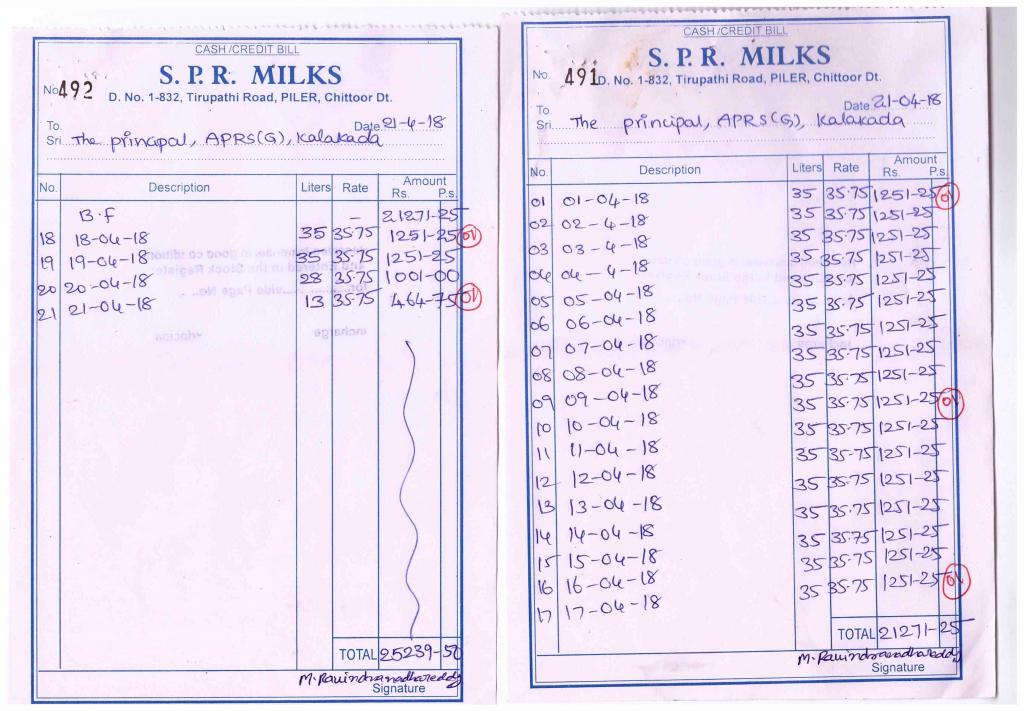 CASH/CREDIT BILL
S. P. R. MILKS
No. 492
D. No. 1-832, Tirupathi Road, PILER, Chittoor Dt.
To. Date 21-4-18
Sri The principal, APRS(G), Kalakada
No. Description Liters Rate Amount
Rs. P.s.
B.f — 21271-25
18 18-04-18 35 35.75 1251-25 01
19 19-04-18 35 35.75 1251-25
20 20-04-18 28 35.75 1001-00
21 21-04-18 13 35.75 464-75 01
TOTAL 25239-50
M. Ravindranadhareddy
Signature
CASH/CREDIT BILL
S. P. R. MILKS
No. 491
D. No. 1-832, Tirupathi Road, PILER, Chittoor Dt.
To. Date 21-04-18
Sri The principal, APRS(G), Kalakada
No. Description Liters Rate Amount
Rs. P.s.
01 01-04-18 35 35.75 1251-25 01
02 02-4-18 35 35.75 1251-25
03 03-4-18 35 35.75 1251-25
04 04-4-18 35 35.75 1251-25
05 05-04-18 35 35.75 1251-25
06 06-04-18 35 35.75 1251-25
07 07-04-18 35 35.75 1251-25
08 08-04-18 35 35.75 1251-25
09 09-04-18 35 35.75 1251-25 01
10 10-04-18 35 35.75 1251-25
11 11-04-18 35 35.75 1251-25
12 12-04-18 35 35.75 1251-25
13 13-04-18 35 35.75 1251-25
14 14-04-18 35 35.75 1251-25
15 15-04-18 35 35.75 1251-25
16 16-04-18 35 35.75 1251-25 01
17 17-04-18 35 35.75 1251-25
TOTAL 21271-25
M. Ravindranadhareddy
Signature